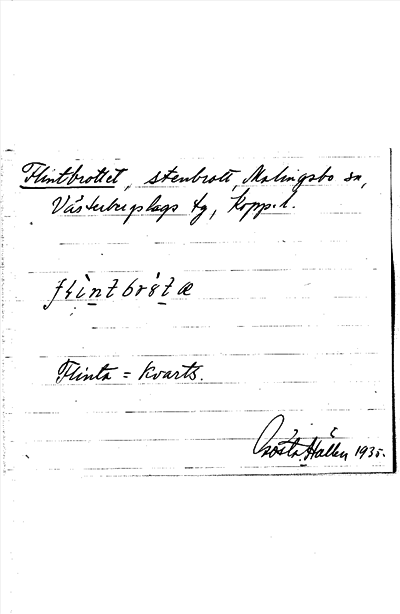 Flintbrottet, stenbrott, Malingsbo sn,
Västerbergslags tg, Kopp. l.
Flinta = Kvarts.
Gösta Hallén 1935.